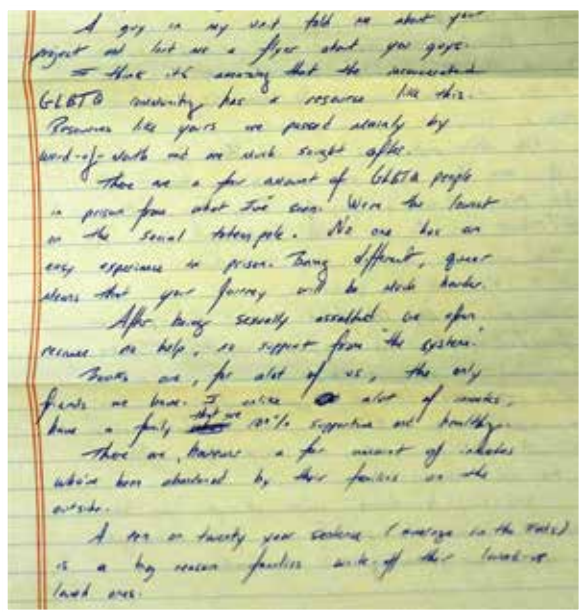 A guy in my unit told me about your
project and lent me a flyer about you guys.
I think it's amazing that the incarcerated
GLBTQ community has a resource like this.
Resources like yours are passed mainly by
word-of-mouth and are much sought after.
There are a fair amount of GLBTQ people
in prison from what I've seen. We're the lowest
on the social totem pole. No one has an
easy experience in prison. Being different, queer
means that your journey will be much harder.
After being sexually assaulted we often
receive no help, no support from "the system."
Books are, for alot of us, the only
friends we have. I unlike alot of inmates,
have a family that are 100% supportive and healthy.
There are, however a fair amount of inmates
who've been abandoned by their families on the
outside.
A ten or twenty year sentence (average in the Feds)
is a big reason families write-off their loved-
loved ones.